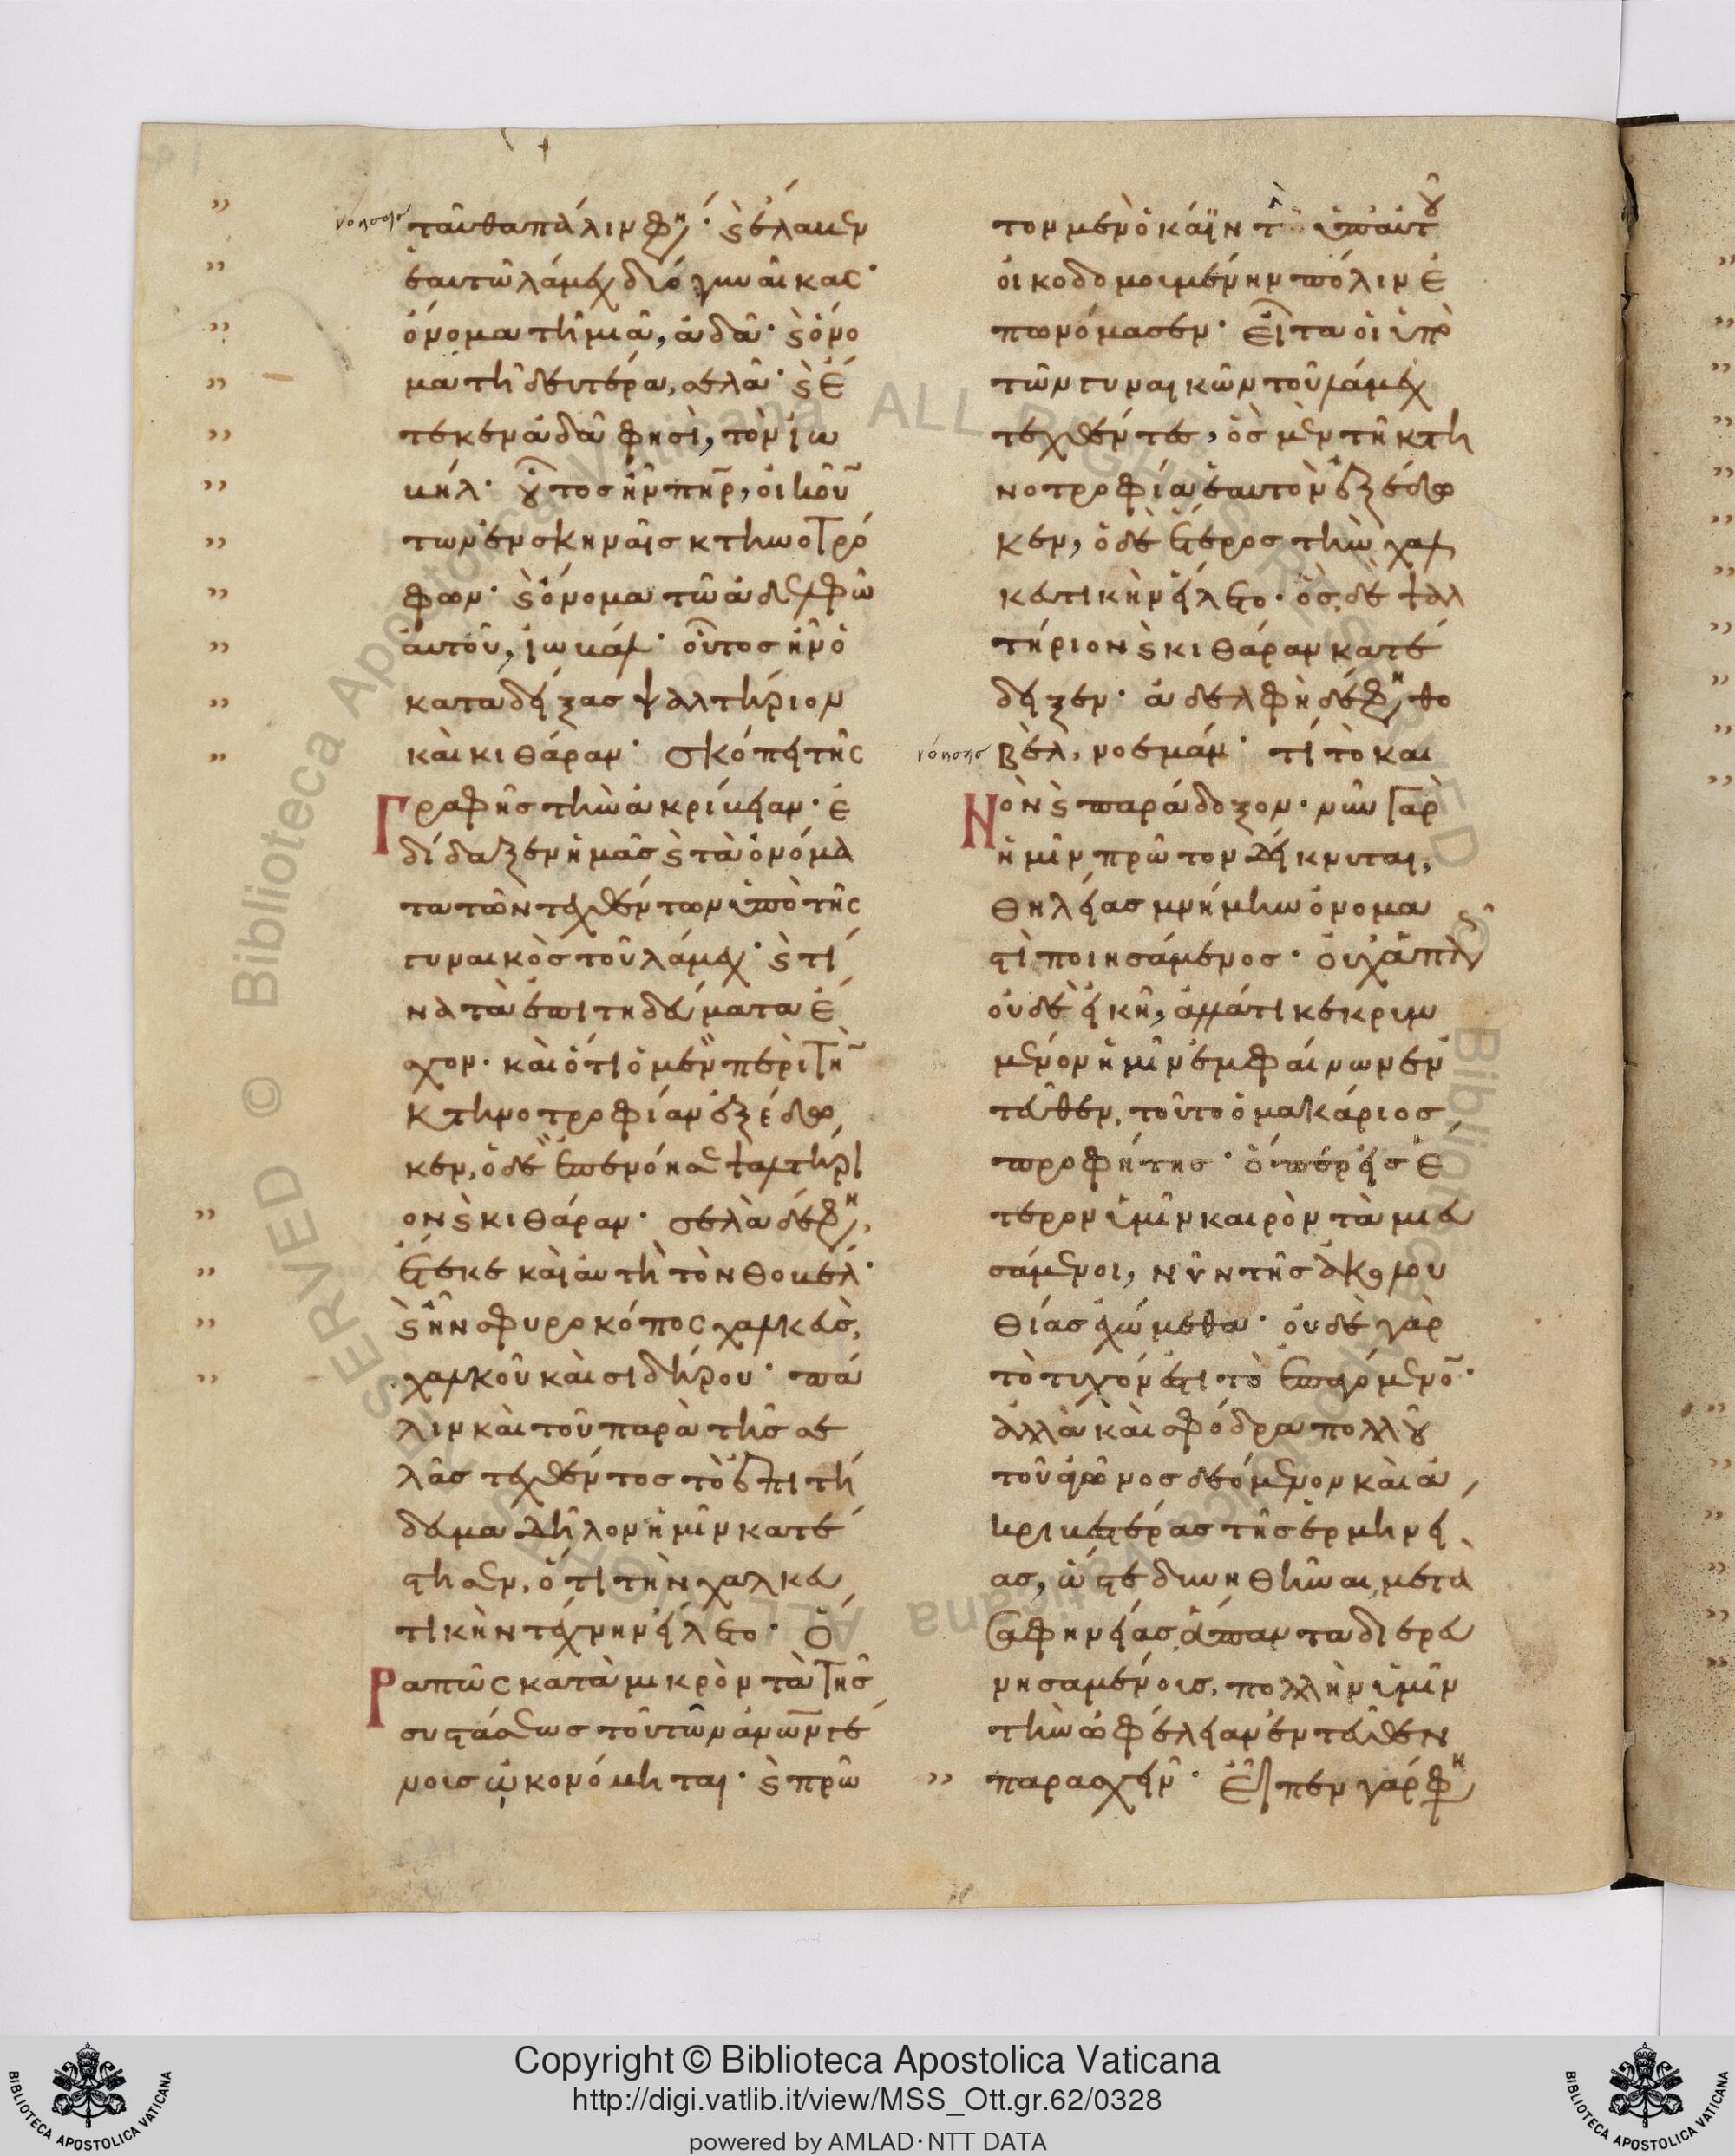 ταῦθα πάλιν φη· καὶ ἔλαβεν
ἑαυτῶ λάμεχ δύο γυναῖκας·
ὄνομα τῆ μιᾶ, ἀδᾶ· καὶ ὄνο
μα τῆ δευτέρα, σελᾶ· καὶ ἔ
τεκεν ἀδᾶ φησὶ, τὸν ἰω
βήλ· οὗτος ἦν πηρ, οἰκούν
των ἐν σκηναῖς κτηνοτρό
φων· καὶ ὄνομα τῶ ἀδελφῶ
αὐτοῦ, ἰωβάλ· οὗτος ἦν ὁ
καταδείξας ψαλτήριον
καὶ κιθάραν· σκόπει τῆς
Γραφῆς τὴν ἀκρίβειαν· ἐ
δίδαξεν ἡμᾶς καὶ τὰ ὀνόμα
τα τῶν τεχθέντων ὑπὸ τῆς
γυναικὸς τοῦ λάμεχ· καὶ τί
να τὰ ἐπιτηδεύματα ἔ
σχον· καὶ ὅτι ὁ μὲν περὶ τὴν
κτηνοτροφίαν ἐξέδω
κεν, ὁ δὲ ἐπενόησε ψαλτήρι
ον καὶ κιθάραν· σελὰ δέ φη,
ἔτεκε καὶ αὐτὴ τὸν θοβέλ·
καὶ ἦν σφυροκόπος χαλκεὺς,
χαλκοῦ καὶ σιδήρου· πά
λιν καὶ τοῦ παρὰ τῆς σε
λᾶς τεχθέντος τὸ ἐπιτή
δευμα δῆλον ἡμῖν κατέ
στησεν, ὅτι τὴν χαλκευ
τικὴν τέχνην εἵλετο· Ὅ
Ρα πῶς κατὰ μικρὸν τὰ τῆς
συστάσεως τοῦ τῶν ἀνων γέ
νους ὠκονόμηται· καὶ πρῶ
τον μὲν ὁ κάϊν τ ὑπ' αὐτοῦ
οἰκοδομουμένην πόλιν ἐ
πωνόμασεν· εἶτα οἱ ὑπὸ
τῶν γυναικῶν τοῦ λάμεχ
τεχθέντες, ὃς μὲν τῆ κτη
νοτροφία ἑαυτὸν ἐξέδω
κεν, ὁ δὲ ἕτερος τὴν χαλ
κευτικὴν εἵλετο· ὃς δὲ ψαλ
τήριον καὶ κιθάραν κατέ
δειξεν· ἀδελφὴ δέ φη θο
βὲλ, νοεμάν· τί τὸ και
Νὸν καὶ παράδοξον· νῦν γὰρ
ἡμῖν πρῶτον δείκνυται,
θηλείας μνήμην ὄνομα
στὶ ποιησάμενος· οὐχ ἁπλῶς
οὐδὲ εἰκῆ, ἀλλά τι κεκρυμ
μένον ἡμῖν ἐμφαίνων ἐν
τεῦθεν, τοῦτο ὁ μακάριος
προφήτης· ὅπερ εἰς ἕ
τερον ὑμῖν καιρὸν ταμιευ
σάμενοι, νῦν τῆς ἀκολου
θίας ἐχώμεθα· οὐδὲ γὰρ
τὸ τυχόν ἐστι τὸ ἑπόμενον·
ἀλλὰ καὶ σφόδρα πολλοῦ
τοῦ ἀγῶνος δεόμενον καὶ ἀ
κριβεστέρας τῆς ἑρμηνεί
ας, ὥστε δυνηθῆναι μετὰ
σαφηνείας ἅπαντα διερευ
νησαμένους, πολλὴν ὑμῖν
τὴν ὠφέλειαν ἐντεῦθεν
παρασχεῖν· εἶπεν γάρ φη